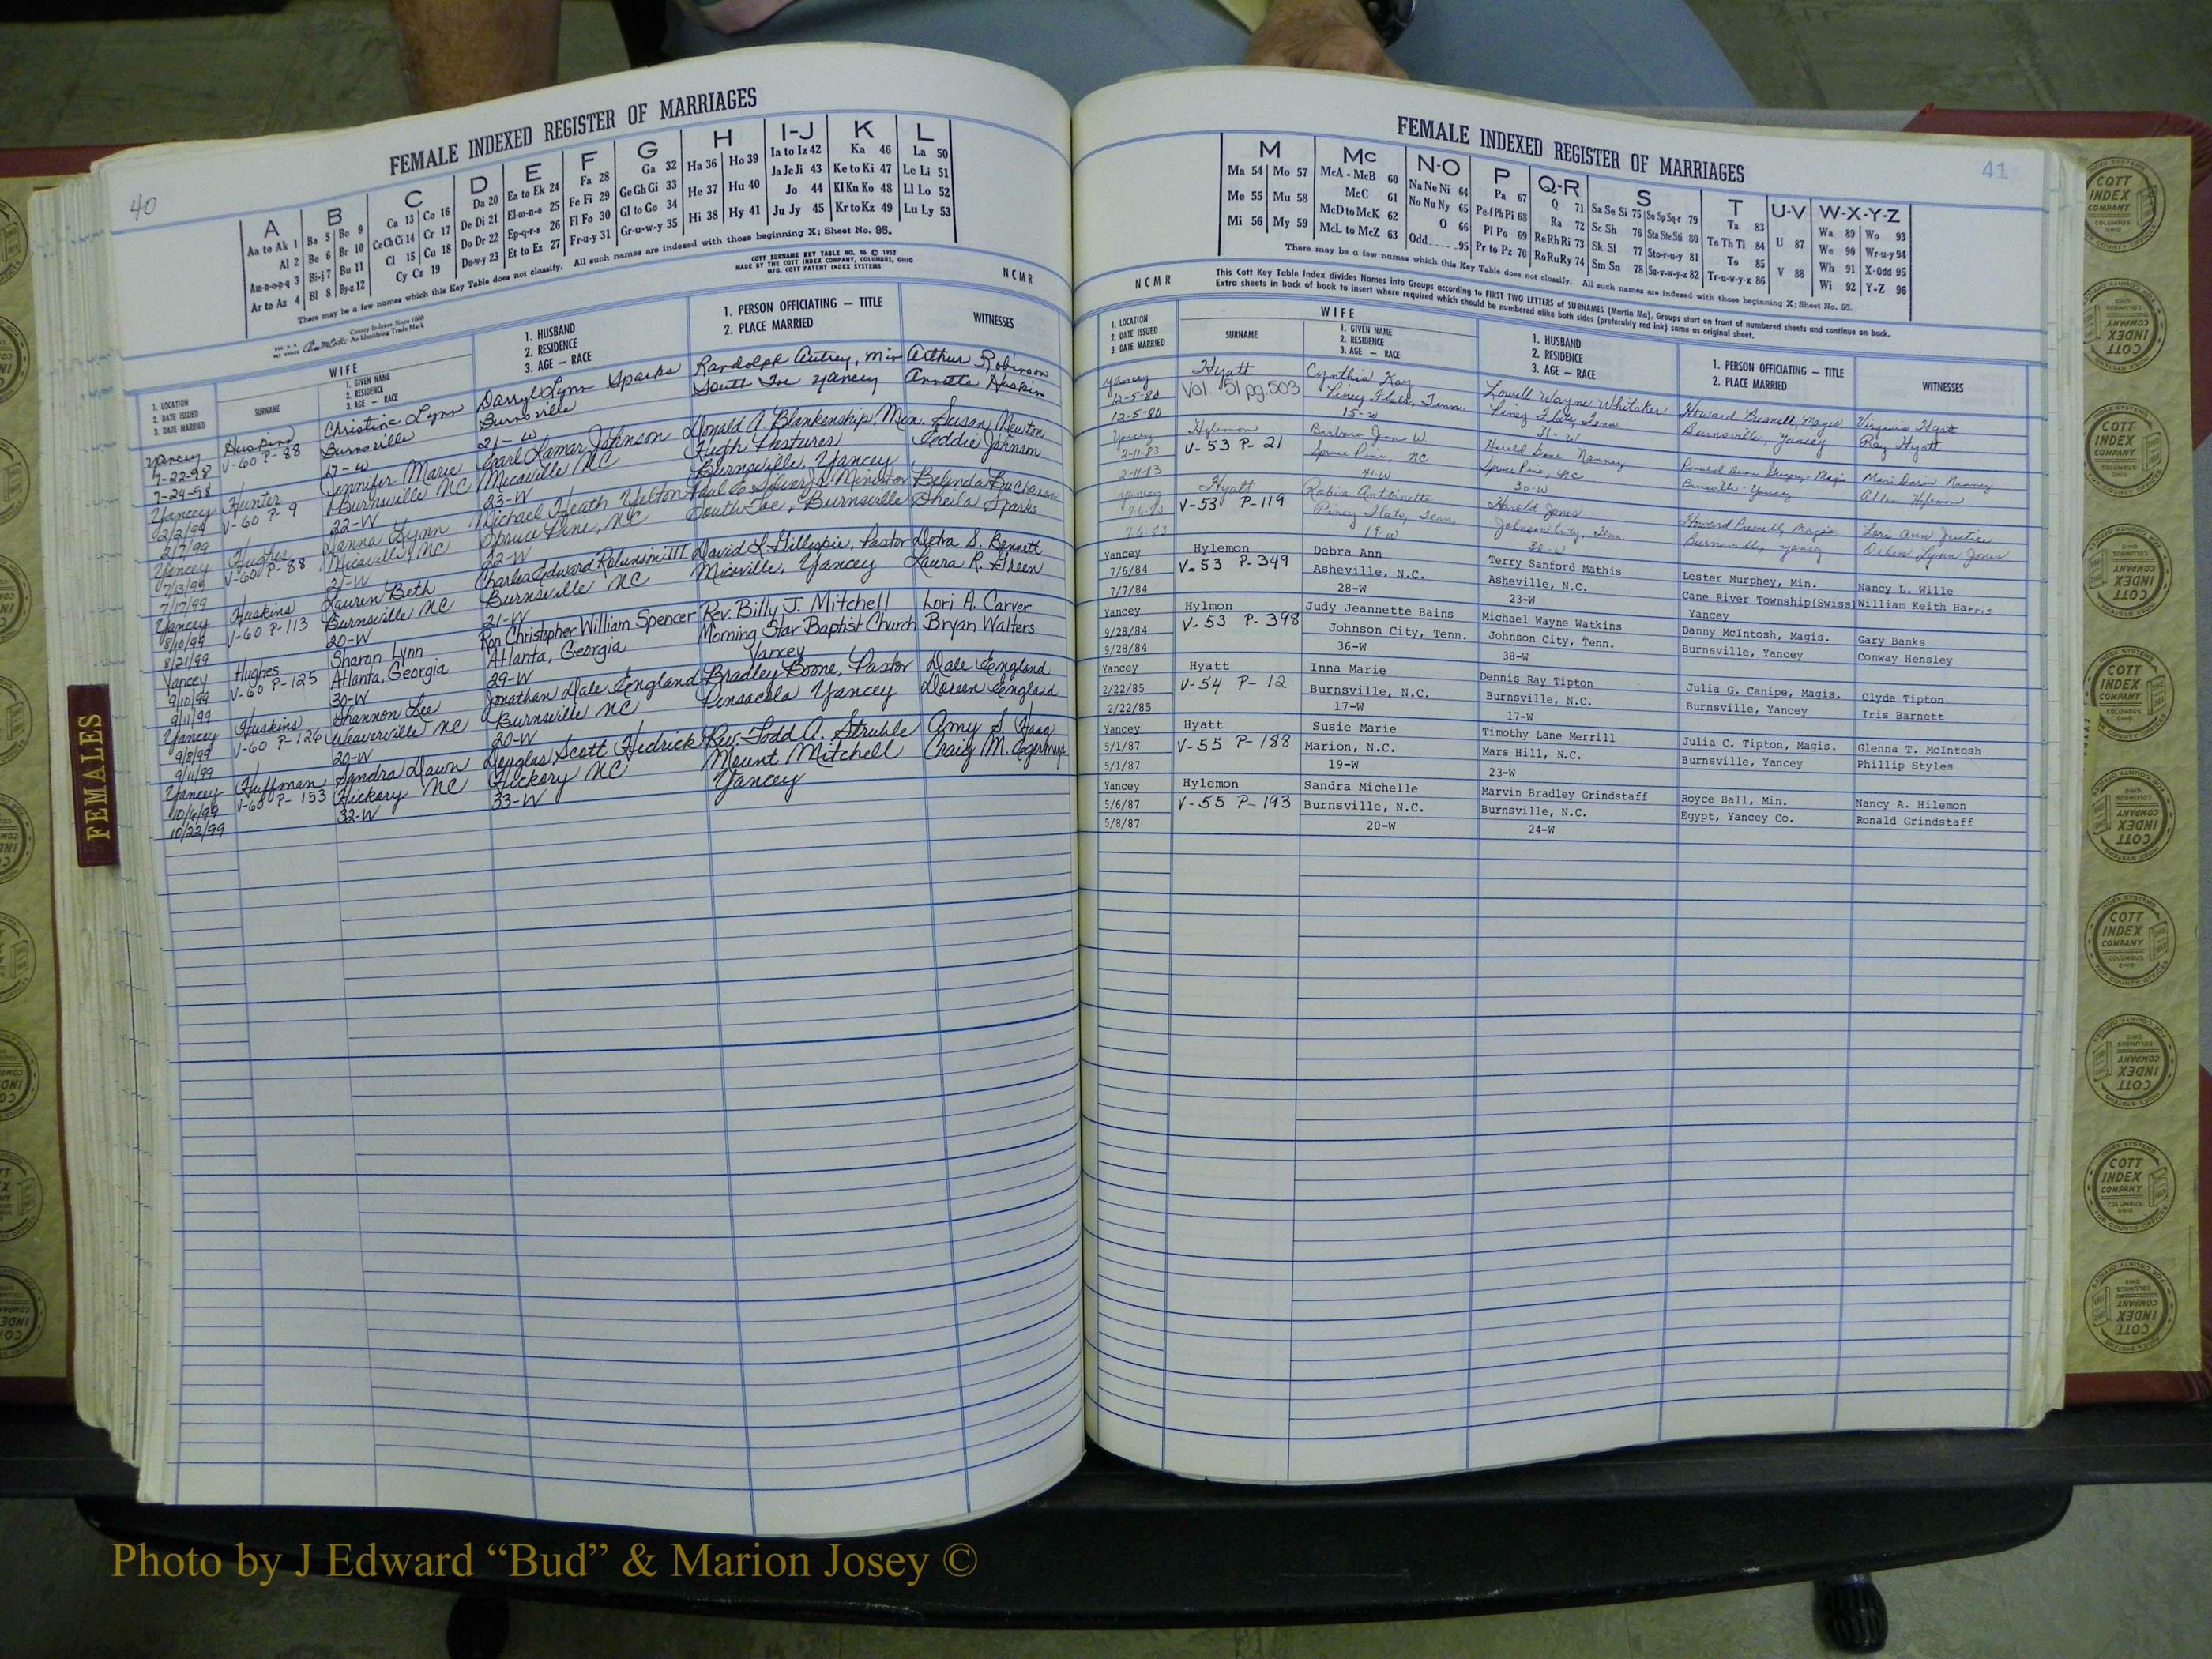 FEMALES
40
FEMALE INDEXED REGISTER OF MARRIAGES
A
Aa to Ak 1
Al 2
Am-n-o-p-q 3
Ar to Az 4
B
Ba 5 Bo 9
Be 6 Br 10
Bi-j 7 Bu 11
Bl 8 By-z 12
C
Ca 13 Co 16
Ce Ch Ci 14 Cr 17
Cl 15 Cu 18
Cy Cz 19
D
Da 20
De Di 21
Do Dr 22
Du-w-y 23
E
Ea to Ek 24
El-m-n-o 25
Ep-q-r-s 26
Et to Ez 27
F
Fa 28
Fe Fi 29
Fl Fo 30
Fr-u-y 31
G
Ga 32
Ge Gh Gi 33
Gl to Go 34
Gr-u-w-y 35
H
Ha 36 Ho 39
He 37 Hu 40
Hi 38 Hy 41
I-J
Ia to Iz 42
Ja Je Ji 43
Jo 44
Ju Jy 45
K
Ka 46
Ke to Ki 47
Kl Kn Ko 48
Kr to Kz 49
L
La 50
Le Li 51
Ll Lo 52
Lu Ly 53
There may be a few names which this Key Table does not classify. All such names are indexed with those beginning X; Sheet No. 95.
County Indexes Since 1888
An Identifying Trade Mark
COTT SURNAME KEY TABLE NO. 96 © 1952
MADE BY THE COTT INDEX COMPANY, COLUMBUS, OHIO
MFG. COTT PATENT INDEX SYSTEMS
NCMR
1. LOCATION
2. DATE ISSUED
3. DATE MARRIED
WIFE
SURNAME
1. GIVEN NAME
2. RESIDENCE
3. AGE — RACE
1. HUSBAND
2. RESIDENCE
3. AGE — RACE
1. PERSON OFFICIATING — TITLE
2. PLACE MARRIED
WITNESSES
Yancey Huskins Christine Lynn Darryl Lynn Sparks Randolph Autrey, Min Arthur Robinson
7-22-98 V-60 P-88 Burnsville Burnsville South Toe Yancey Annette Huskins
7-24-98 17-W 21-W
Yancey Hunter Jennifer Marie Earl Lamar Johnson Donald A. Blankenship, Min. Susan Newton
2/2/99 V-60 P-9 Burnsville NC Micaville NC High Pastures Eddie Johnson
2/7/99 22-W 23-W Burnsville, Yancey
Yancey Hughes Michael Heath Melton Paul E. Minister Belinda Buchanan
7/13/99 V-60 P-88 Micaville, NC Spruce Pine, NC South Toe, Burnsville Sheila Sparks
7/17/99 21-W 22-W
Yancey Huskins Lauren Beth Charles Edward Robinson III David L. Gillespie, Pastor Detra S. Bennett
8/10/99 V-60 P-113 Burnsville NC Burnsville NC Micaville, Yancey Laura K. Green
8/21/99 20-W 21-W
Yancey Hughes Sharon Lynn Ron Christopher William Spencer Rev. Billy J. Mitchell Lori A. Carver
9/10/99 V-60 P-125 Atlanta, Georgia Atlanta, Georgia Morning Star Baptist Church Bryan Walters
9/11/99 30-W 29-W Yancey
Yancey Huskins Shannon Lee Jonathan Dale England Bradley Boone, Pastor Dale England
9/8/99 V-60 P-126 Weaverville NC Burnsville NC Pensacola Yancey Doreen England
9/11/99 20-W 20-W
Yancey Huffman Sandra Dawn Douglas Scott Hedrick Rev. Todd A. Struble Amy S. Haag
10/6/99 V-60 P-153 Hickory NC Hickory NC Mount Mitchell Craig M.
10/22/99 32-W 33-W Yancey
FEMALE INDEXED REGISTER OF MARRIAGES
41
M
Ma 54 Mo 57
Me 55 Mu 58
Mi 56 My 59
Mc
McA - McB 60
McC 61
McD to McK 62
McL to McZ 63
N-O
Na Ne Ni 64
No Nu Ny 65
O 66
Odd 95
P
Pa 67
Pe-f Ph Pi 68
Pl Po 69
Pr to Pz 70
Q-R
Q 71
Ra 72
Re Rh Ri 73
Ro Ru Ry 74
S
Sa Se Si 75 So Sp Sq-r 79
Sc Sh 76 Sta Ste Sti 80
Sk Sl 77 Sto-r-u-y 81
Sm Sn 78 Su-v-w-y-z 82
T
Ta 83
Te Th Ti 84
To 85
Tr-u-w-y-z 86
U-V
U 87
V 88
W-X-Y-Z
Wa 89 Wo 93
We 90 Wr-u-y 94
Wh 91 X-Odd 95
Wi 92 Y-Z 96
There may be a few names which this Key Table does not classify. All such names are indexed with those beginning X; Sheet No. 95.
NCMR
This Cott Key Table Index divides Names into Groups according to FIRST TWO LETTERS of SURNAMES (Martin Ma). Groups start on front of numbered sheets and continue on back.
Extra sheets in back of book to insert where required which should be numbered alike both sides (preferably red ink) same as original sheet.
1. LOCATION
2. DATE ISSUED
3. DATE MARRIED
WIFE
SURNAME
1. GIVEN NAME
2. RESIDENCE
3. AGE — RACE
1. HUSBAND
2. RESIDENCE
3. AGE — RACE
1. PERSON OFFICIATING — TITLE
2. PLACE MARRIED
WITNESSES
Yancey Hyatt Cynthia Kay Lowell Wayne Whitaker Howard Presnell, Magis Virginia Hyatt
12-5-80 Vol. 51 pg. 503 Piney Flats, Tenn. Piney Flats, Tenn Burnsville, Yancey Ray Hyatt
12-5-80 15-W 31-W
Yancey Hylemon Barbara Jean W. Harold Gene Nanney
2-11-83 V-53 P-21 Spruce Pine, NC Spruce Pine, NC Burnsville - Yancey Allen Hylemon
2-11-83 41-W 30-W
Yancey Hyatt Robin Antoinette Harold Jones Howard Presnell, Magis Lori Ann Justice
7-6-83 V-53 P-119 Piney Flats, Tenn. Johnson City, Tenn. Burnsville, Yancey Lynn Jones
7-6-83 19-W 30-W
Yancey Hylemon Debra Ann Terry Sanford Mathis Lester Murphey, Min. Nancy L. Wille
7/6/84 V.53 P-349 Asheville, N.C. Asheville, N.C. Cane River Township(Swiss) William Keith Harris
7/7/84 28-W 23-W Yancey
Yancey Hylmon Judy Jeannette Bains Michael Wayne Watkins Danny McIntosh, Magis. Gary Banks
9/28/84 V-53 P-398 Johnson City, Tenn. Johnson City, Tenn. Burnsville, Yancey Conway Hensley
9/28/84 36-W 38-W
Yancey Hyatt Inna Marie Dennis Ray Tipton Julia G. Canipe, Magis. Clyde Tipton
2/22/85 V-54 P-12 Burnsville, N.C. Burnsville, N.C. Burnsville, Yancey Iris Barnett
2/22/85 17-W 17-W
Yancey Hyatt Susie Marie Timothy Lane Merrill Julia C. Tipton, Magis. Glenna T. McIntosh
5/1/87 V-55 P-188 Marion, N.C. Mars Hill, N.C. Burnsville, Yancey Phillip Styles
5/1/87 19-W 23-W
Yancey Hylemon Sandra Michelle Marvin Bradley Grindstaff Royce Ball, Min. Nancy A. Hilemon
5/6/87 V-55 P-193 Burnsville, N.C. Burnsville, N.C. Egypt, Yancey Co. Ronald Grindstaff
5/8/87 20-W 24-W
COTT INDEX COMPANY
COLUMBUS OHIO
INDEX SYSTEMS
FOR COUNTY OFFICES
Photo by J Edward “Bud” & Marion Josey ©